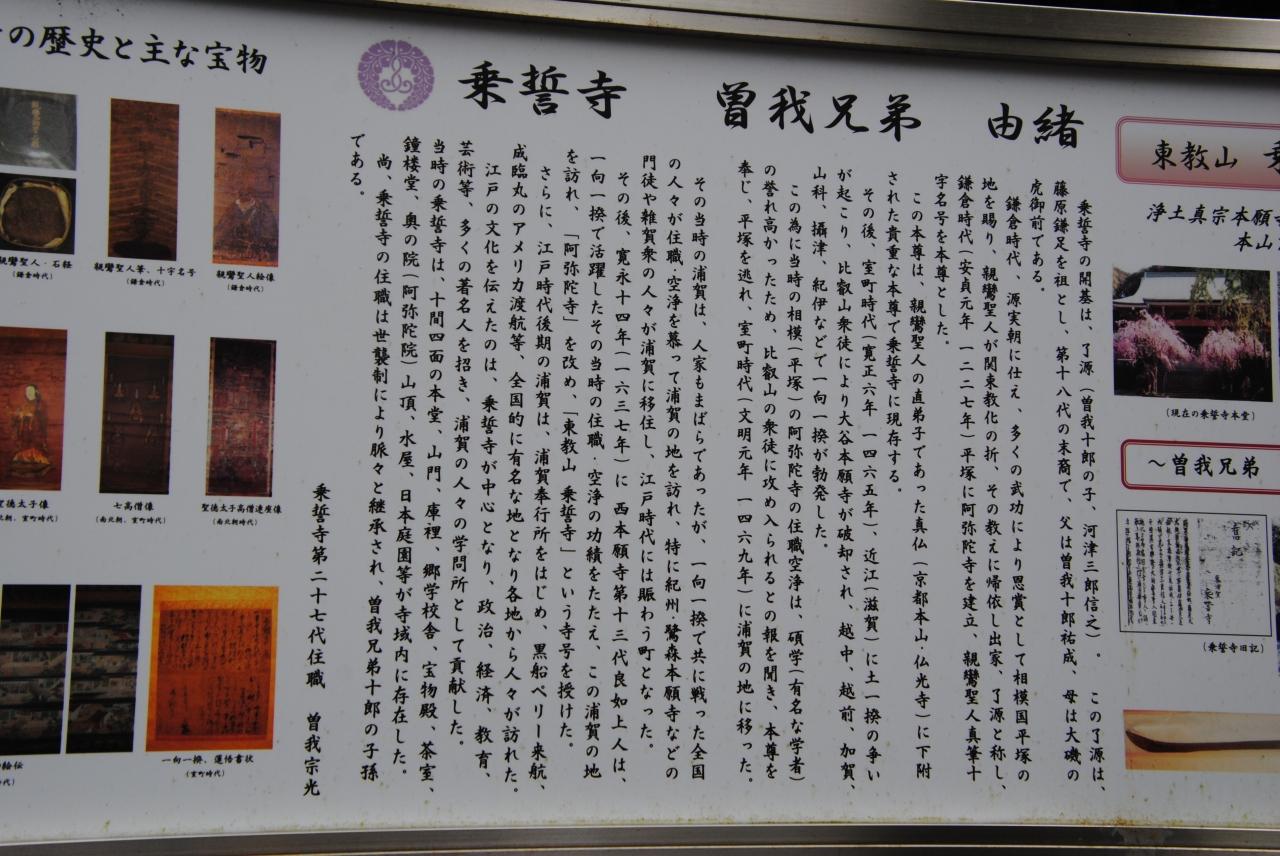 の歴史と主な宝物
乗誓寺　曽我兄弟　由緒
東教山
浄土真宗本願
本山
(現在の乗誓寺本堂)
～曽我兄弟
(乗誓寺旧記)
乗誓寺の開基は、了源（曽我十郎の子、河津三郎信之）。この了源は、
藤原鎌足を祖とし、第十八代の末裔で、父は曽我十郎祐成、母は大磯の
虎御前である。
鎌倉時代、源実朝に仕え、多くの武功により恩賞として相模国平塚の
地を賜り、親鸞聖人が関東教化の折、その教えに帰依し出家、了源と称し、
鎌倉時代（安貞元年　一二二七年）平塚に阿弥陀寺を建立、親鸞聖人真筆十
字名号を本尊とした。
この本尊は、親鸞聖人の直弟子であった真仏（京都本山・仏光寺）に下附
された貴重な本尊で乗誓寺に現存する。
その後、室町時代（寛正六年　一四六五年）、近江（滋賀）に土一揆の争い
が起こり、比叡山衆徒により大谷本願寺が破却され、越中、越前、加賀、
山科、攝津、紀伊などで一向一揆が勃発した。
この為に当時の相模（平塚）の阿弥陀寺の住職空浄は、碩学（有名な学者）
の誉れ高かったため、比叡山の衆徒に攻め入られるとの報を聞き、本尊を
奉じ、平塚を逃れ、室町時代（文明元年　一四六九年）に浦賀の地に移った。
その当時の浦賀は、人家もまばらであったが、一向一揆で共に戦った全国
の人々が住職・空浄を慕って浦賀の地を訪れ、特に紀州・鷺森本願寺などの
門徒や雑賀衆の人々が浦賀に移住し、江戸時代には賑わう町となった。
その後、寛永十四年（一六三七年）に西本願寺第十三代良如上人は、
一向一揆で活躍したその当時の住職・空浄の功績をたたえ、この浦賀の地
を訪れ、「阿弥陀寺」を改め、「東教山　乗誓寺」という寺号を授けた。
さらに、江戸時代後期の浦賀は、浦賀奉行所をはじめ、黒船ペリー来航、
咸臨丸のアメリカ渡航等、全国的に有名な地となり各地から人々が訪れた。
江戸の文化を伝えたのは、乗誓寺が中心となり、政治、経済、教育、
芸術等、多くの著名人を招き、浦賀の人々の学問所として貢献した。
当時の乗誓寺は、十間四面の本堂、山門、庫裡、郷学校舎、宝物殿、茶室、
鐘楼堂、奥の院（阿弥陀院）山頂、水屋、日本庭園等が寺域内に存在した。
尚、乗誓寺の住職は世襲制により脈々と継承され、曽我兄弟十郎の子孫
である。
乗誓寺第二十七代住職　曽我宗光
親鸞聖人・石経
(鎌倉時代)
親鸞聖人筆、十字名号
(鎌倉時代)
親鸞聖人絵像
(鎌倉時代)
聖徳太子像
北朝、室町時代)
七高僧像
(南北朝、室町時代)
聖徳太子高僧連座像
(南北朝時代)
絵伝
一向一揆、蓮悟書状
(室町時代)